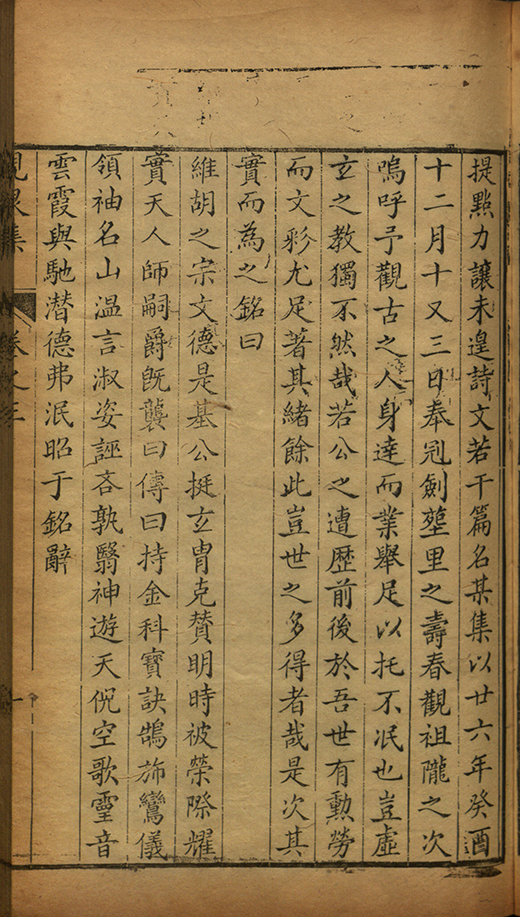 提點力讓未遑詩文若干篇名某集以廿六年癸酉
十二月十又三日奉冠劍塟里之壽春觀祖隴之次
嗚呼予觀古之人身達而業舉足以托不泯也豈虛
玄之教獨不然哉若公之遭歴前後於吾世有勲勞
而文彩尤足著其緒餘此豈世之多得者哉是次其
實而為之銘曰
維胡之宗文德是基公挺玄冑克賛明時被榮際耀
實天人師嗣爵既襲曰傳曰持金科寶訣鵠斾鸞儀
領袖名山温言淑姿誣吝孰翳神遊天倪空歌靈音
雲霞與馳潜德弗泯昭于銘辭
峴泉集
卷之三